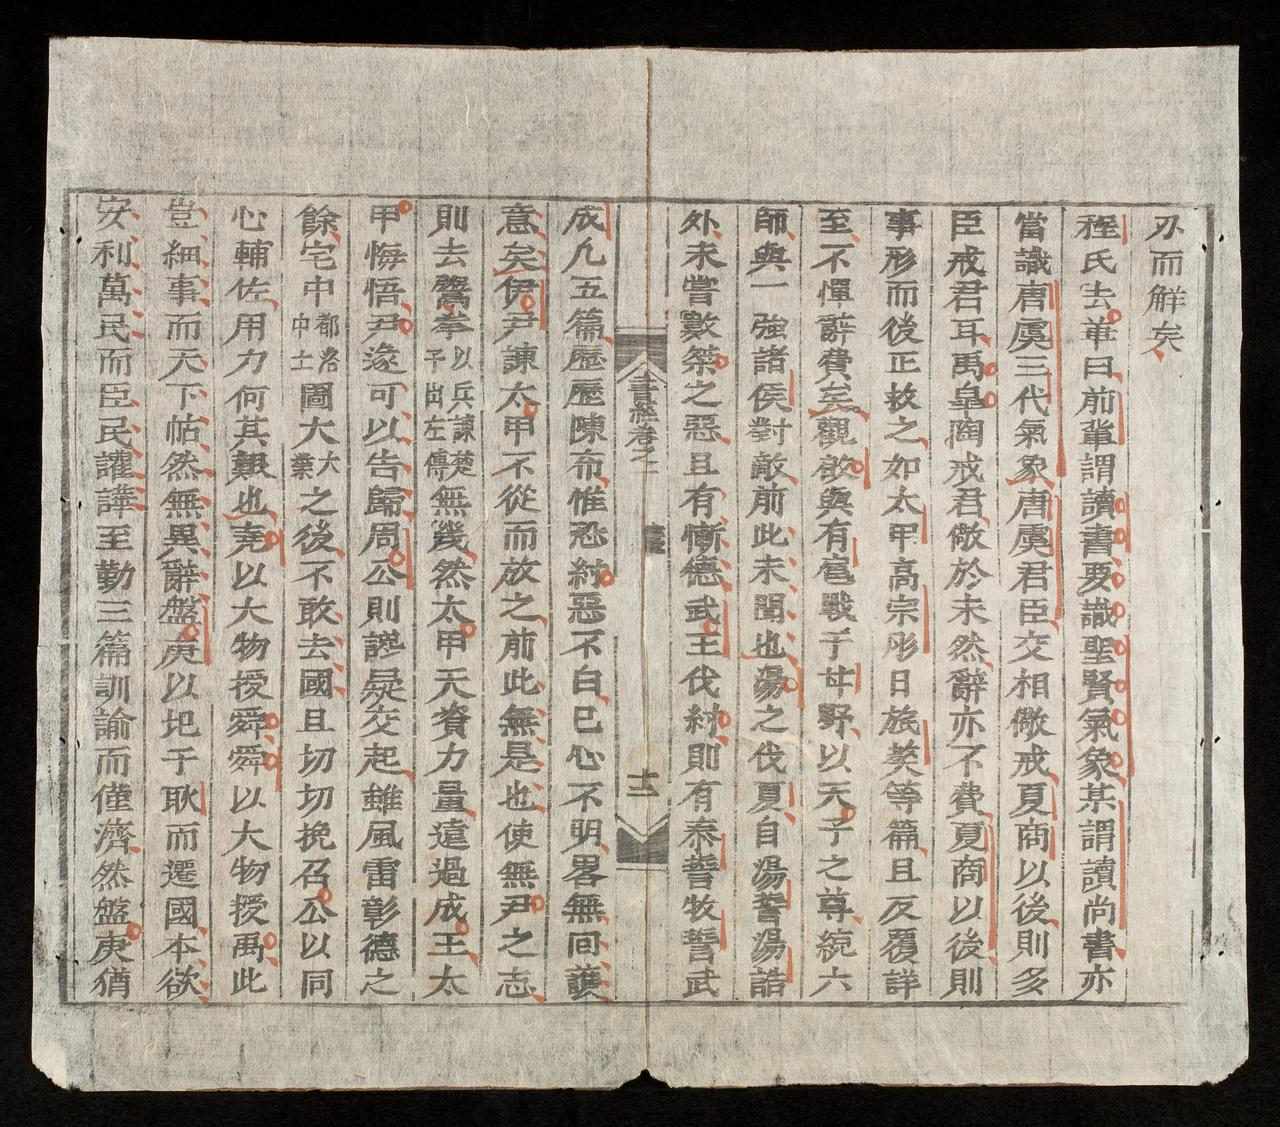 刃而解矣
程氏去華曰前軰謂讀書要識聖賢氣象某謂讀尚書亦
當識唐虞三代氣象唐虞君臣交相儆戒夏商以後則多
臣戒君耳禹臯陶戒君儆於未然辭亦不費夏商以後則
事形而後正救之如太甲高宗肜日旅獒等篇且反覆詳
至不憚辭費矣觀啟與有扈戰于甘野以天子之尊統六
師與一強諸侯對敵前此未聞也湯之伐夏自湯誓湯誥
外未嘗數桀之惡且有慚德武王伐紂則有泰誓牧誓武
書經卷之一
十二
成凡五篇歷歷陳布惟恐紂惡不白己心不明畧無囘護
意矣伊尹諫太甲不從而放之前此無是也使無尹之志
則去鬻拳以兵諫楚子出左傳無幾然太甲天資力量遠過成王太
甲悔悟尹遂可以告歸周公則讒疑交起雖風雷彰德之
餘宅中都洛中土圖大大業之後不敢去國且切切挽召公以同
心輔佐用力何其艱也堯以大物授舜舜以大物授禹此
豈細事而天下帖然無異辭盤庚以圯于耿而遷國本欲
安利萬民而臣民讙譁至勤三篇訓諭而僅濟然盤庚猶